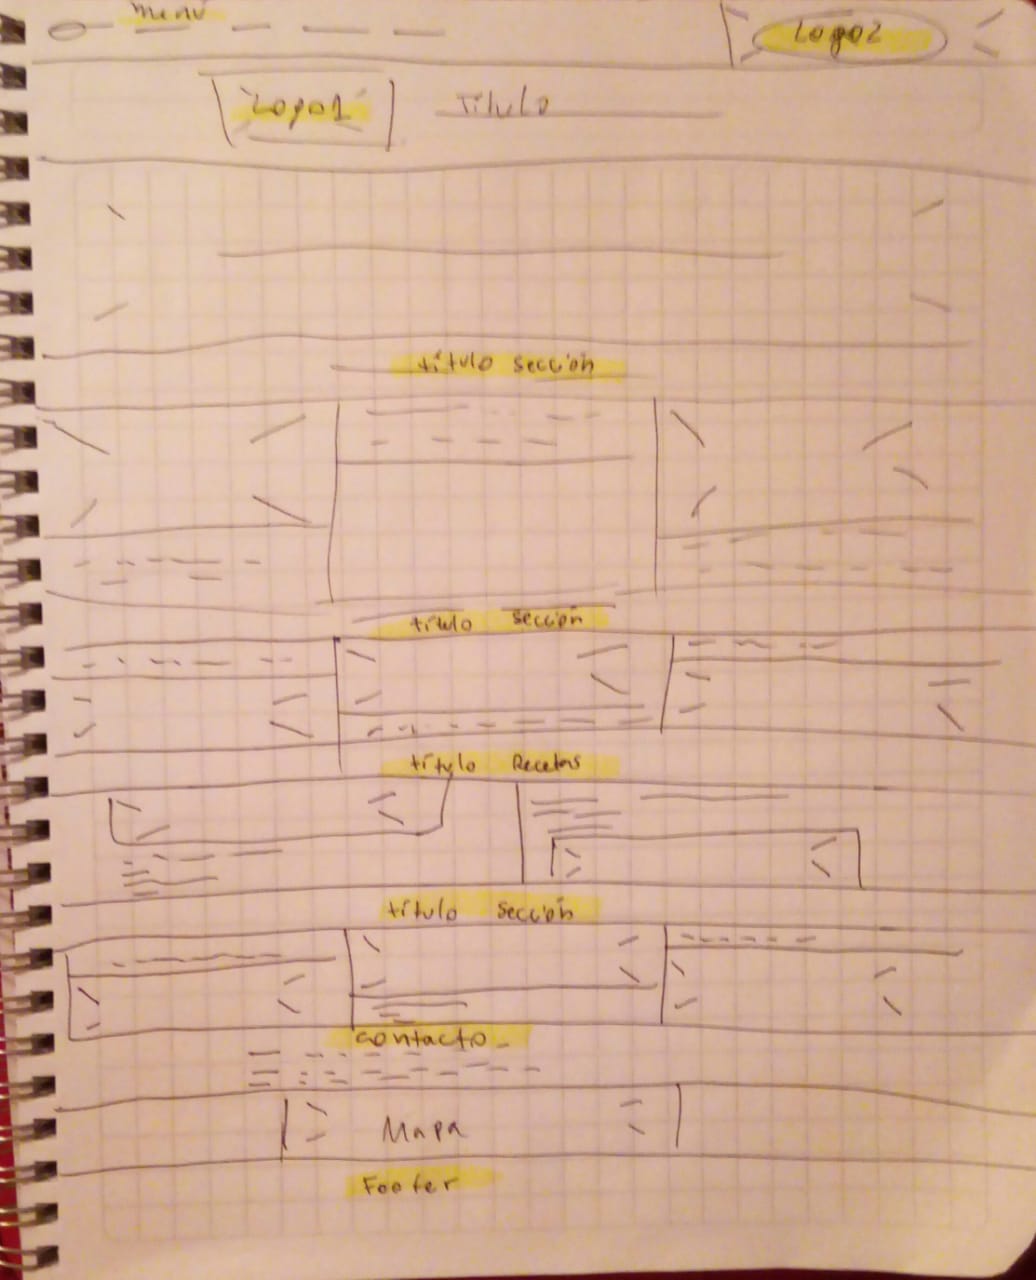 menú
Logo2
Logo1 Título
título sección
título sección
título Recetas
título sección
contacto
Mapa
Footer